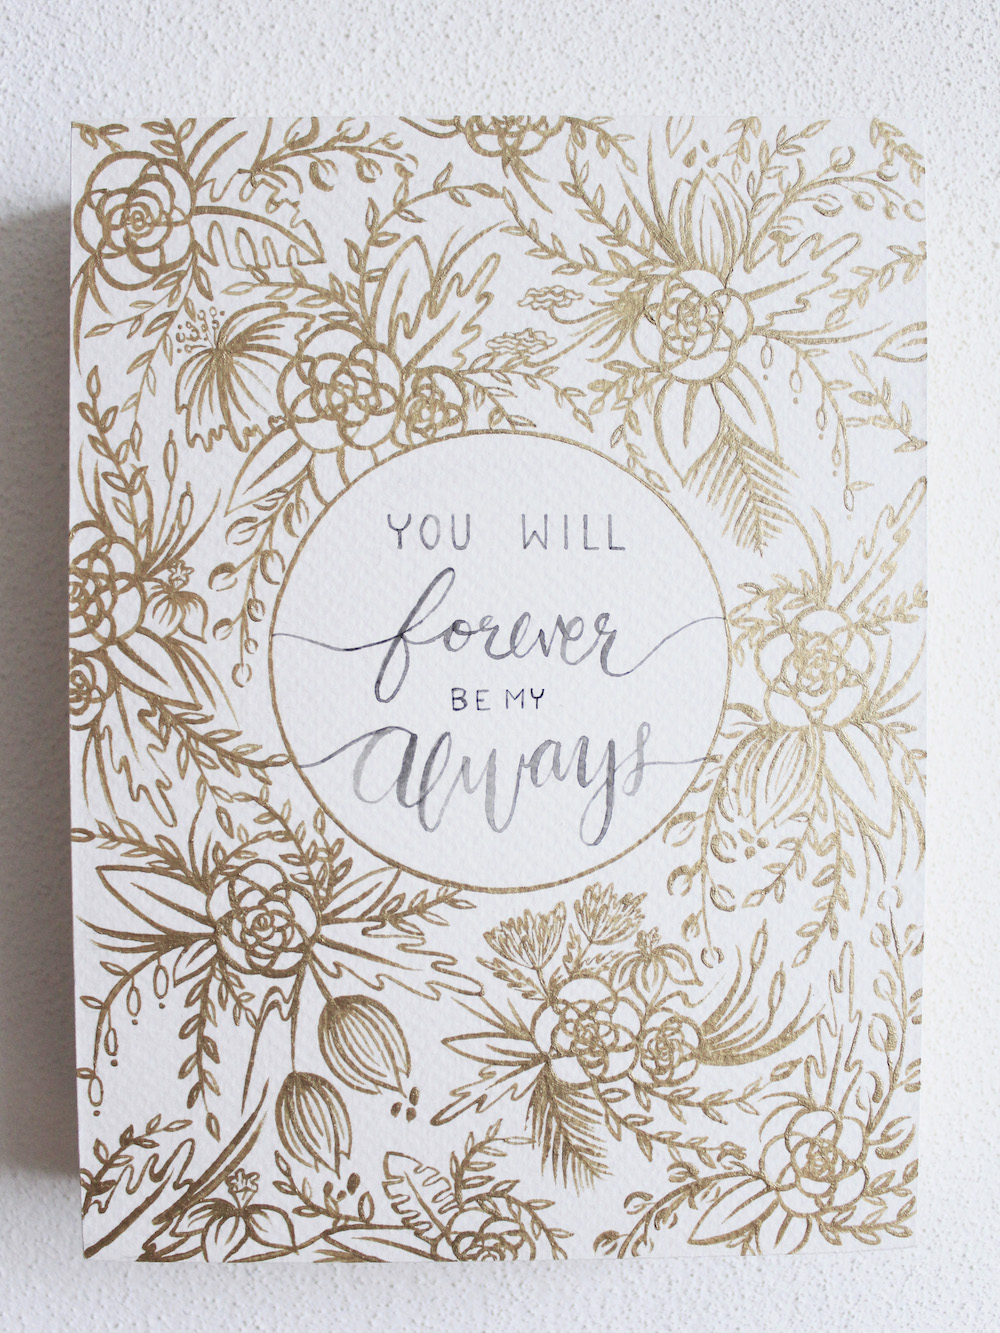 YOU WILL
forever
BE MY
always